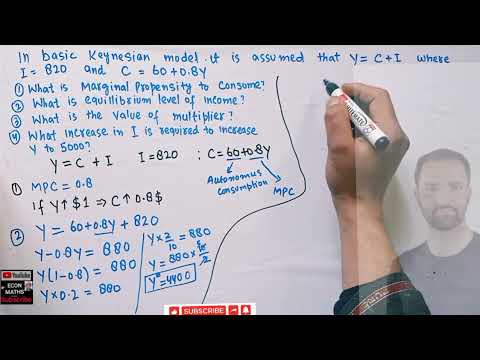 In basic Keynesian model it is assumed that Y = C + I where
I = 820 and C = 60 + 0.8Y
① What is Marginal Propensity to Consome?
② What is equilibrium level of income?
③ What is the value of multiplier?
④ What Increase in I is required to increase
Y to 5000?
Y = C + I I = 820 ; C = 60+0.8Y
Autonomus
consumption
MPC
① MPC = 0.8
If Y↑ $1 ⇒ C↑ 0.8$
② Y = 60+0.8Y + 820
Y-0.8Y = 880
Y(1-0.8) = 880
Y×0.2 = 880
Y×2/10 = 880
Y = 880 × 10/2
Y* = 4400
YouTube
ECON
MATHS
Subscribe
SUBSCRIBE